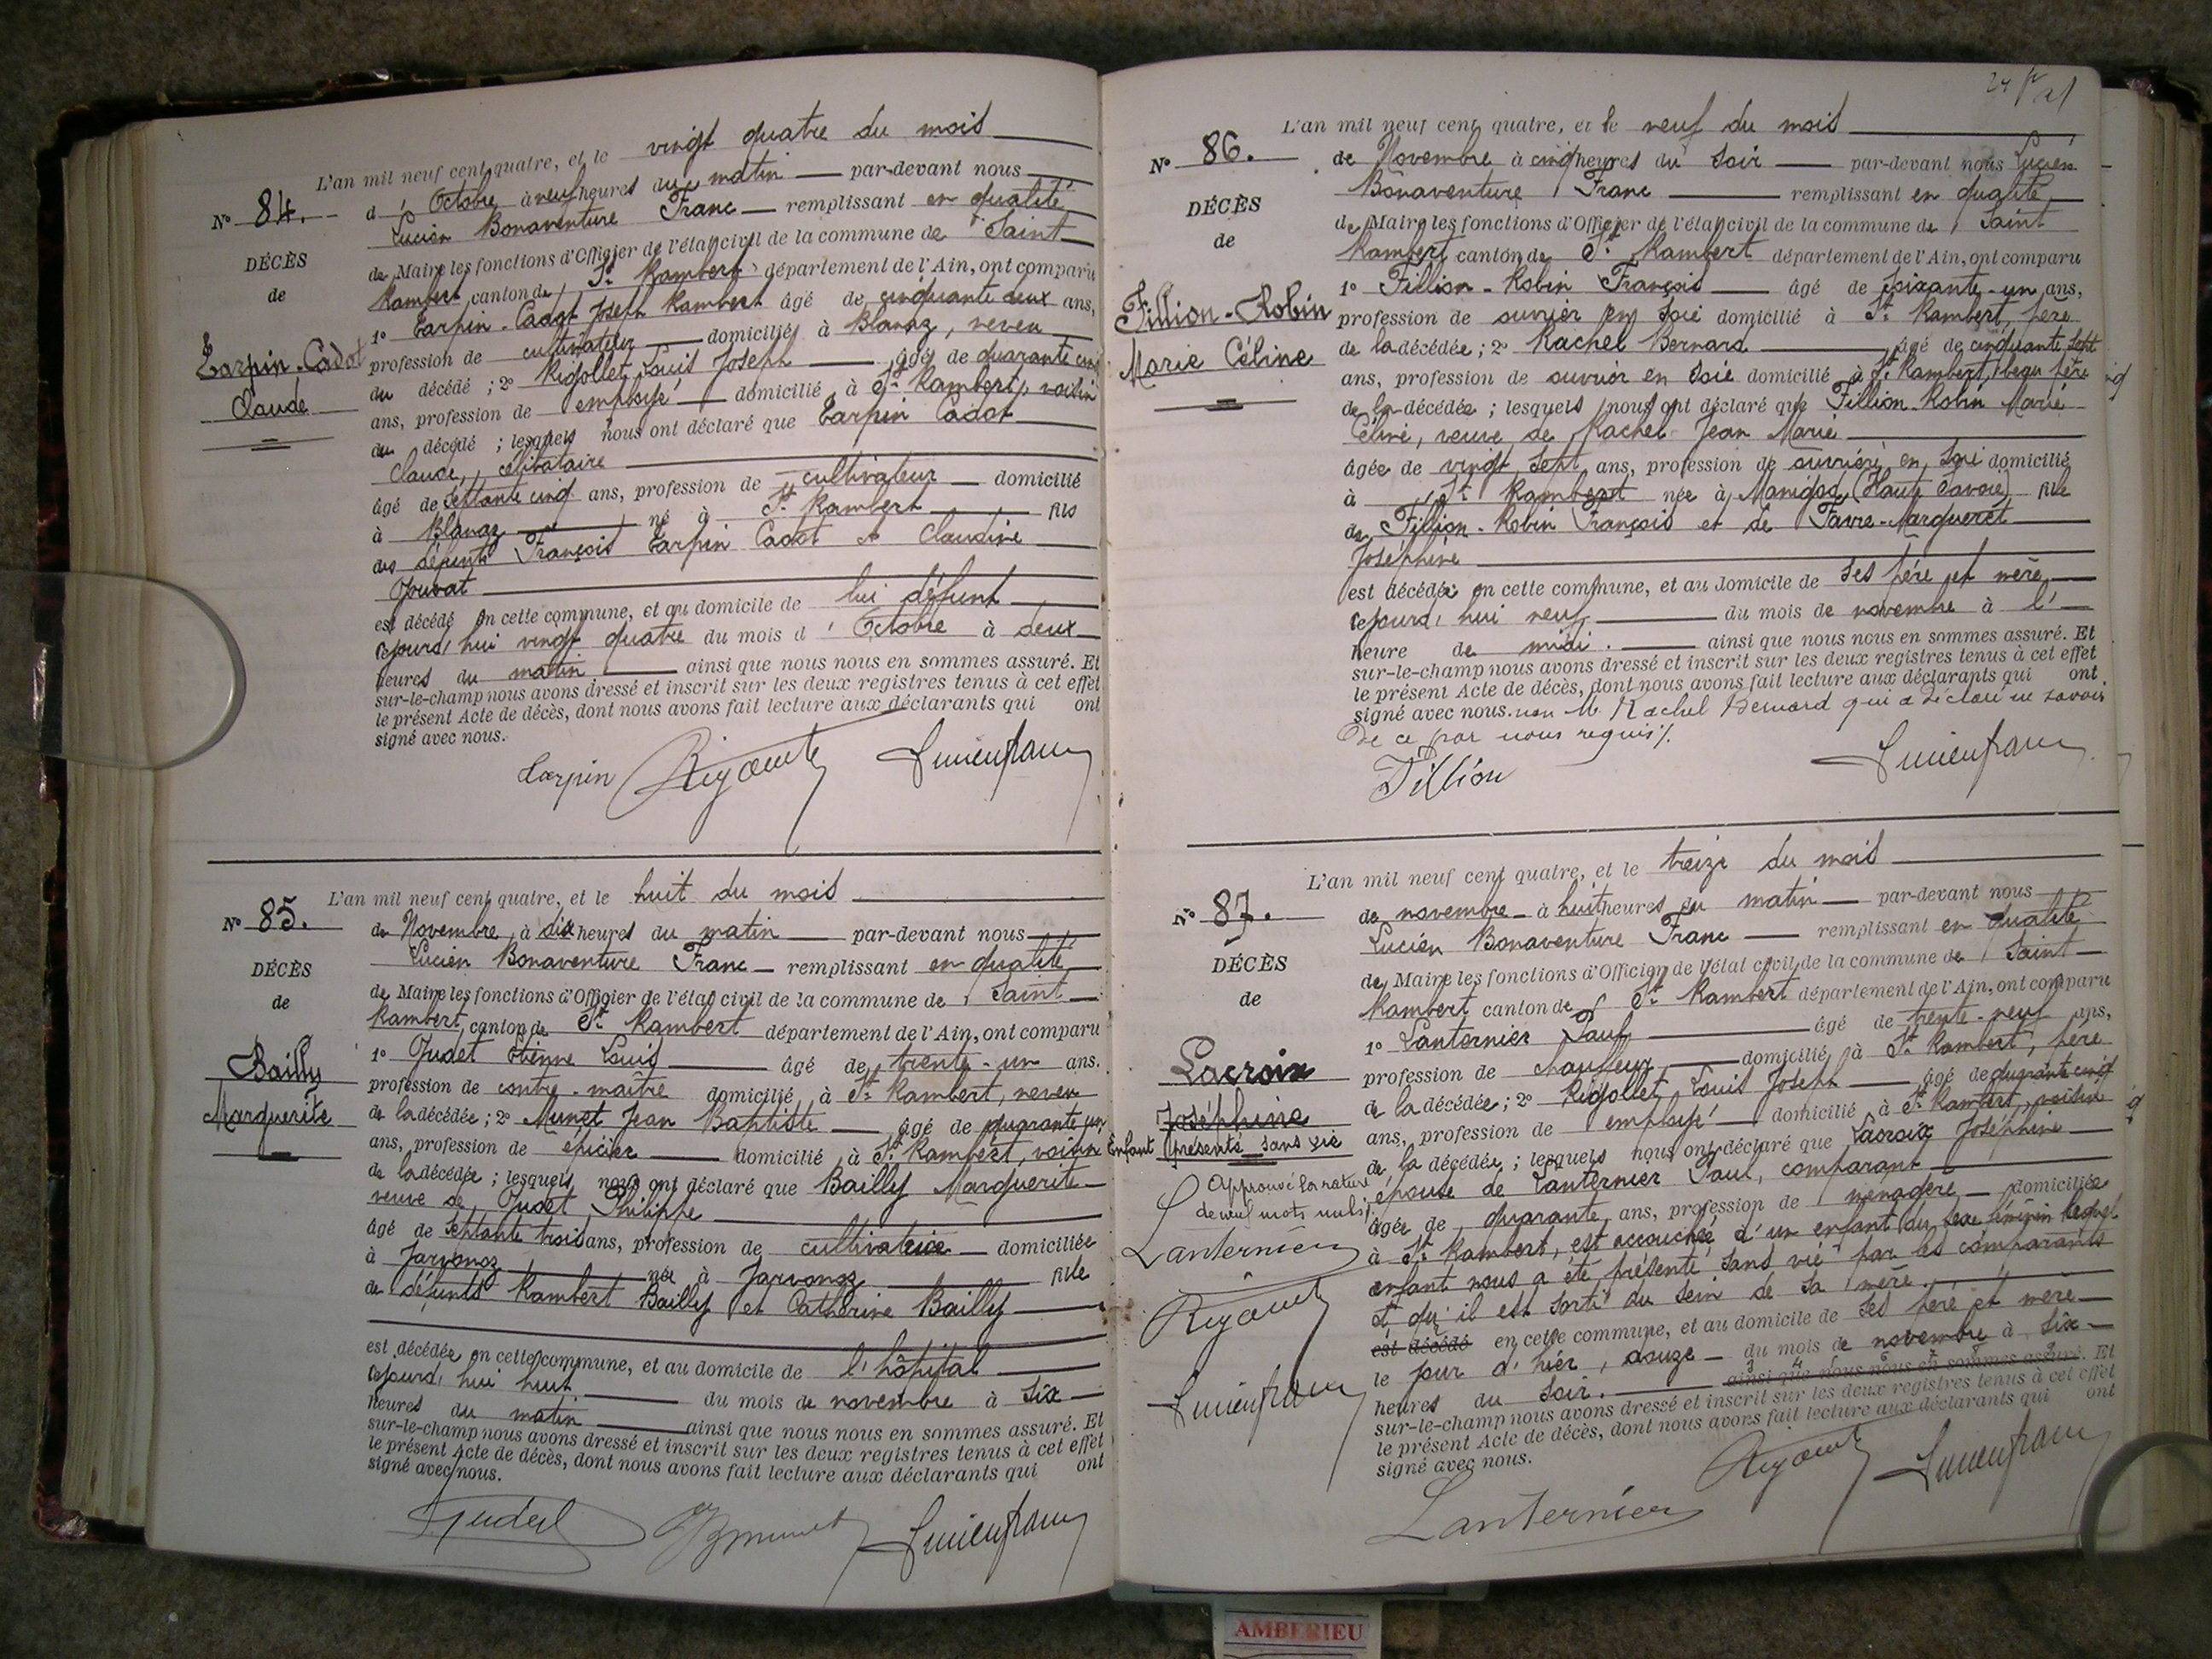 L'an mil neuf cent quatre, et le vingt quatre du mois
N° 84. d'Octobre à neuf heures du matin par-devant nous
Lucien Bonaventure Franc remplissant en qualité
DÉCÈS de Maire les fonctions d'Officier de l'état civil de la commune de Saint
de Rambert canton de St Rambert département de l'Ain, ont comparu
1° Tarpin-Cadot Joseph Rambert âgé de cinquante deux ans,
Tarpin-Cadot profession de cultivateur domicilié à Blanaz, neveu
Claude du décédé ; 2° Rigollet Louis Joseph âgé de quarante cinq
ans, profession de employé domicilié à St Rambert, voisin
du décédé ; lesquels nous ont déclaré que Tarpin Cadot
Claude, célibataire
âgé de septante cinq ans, profession de cultivateur domicilié
à Blanaz né à St Rambert fils
des défunts François Tarpin Cadot et Claudine
Juvat
est décédé en cette commune, et au domicile de lui défunt
cejourd'hui vingt quatre du mois d'Octobre à deux
heures du matin ainsi que nous nous en sommes assuré. Et
sur-le-champ nous avons dressé et inscrit sur les deux registres tenus à cet effet
le présent Acte de décès, dont nous avons fait lecture aux déclarants qui ont
signé avec nous.
Tarpin Rigollet Lucien Franc
L'an mil neuf cent quatre, et le huit du mois
N° 85. de Novembre à dix heures du matin par-devant nous
Lucien Bonaventure Franc remplissant en qualité
DÉCÈS de Maire les fonctions d'Officier de l'état civil de la commune de Saint
de Rambert canton de St Rambert département de l'Ain, ont comparu
1° Judet Etienne Louis âgé de trente-un ans.
Bailly profession de contre-maître domicilié à St Rambert, neveu
Marguerite de la décédée ; 2° Munet Jean Baptiste âgé de quarante un
ans, profession de épicier domicilié à St Rambert, voisin
de la décédée ; lesquels nous ont déclaré que Bailly Marguerite
veuve de Judet Philippe
âgé de septante trois ans, profession de cultivatrice domiciliée
à Javonoz née à Javonoz fille
de défunts Rambert Bailly et Catherine Bailly
est décédée en cette commune, et au domicile de l'hôpital
cejourd'hui huit du mois de novembre à six
heures du matin ainsi que nous nous en sommes assuré. Et
sur-le-champ nous avons dressé et inscrit sur les deux registres tenus à cet effet
le présent Acte de décès, dont nous avons fait lecture aux déclarants qui ont
signé avec nous.
Judet JB munet Lucien Franc
L'an mil neuf cent quatre, et le neuf du mois
N° 86. de Novembre à cinq heures du soir par-devant nous Lucien
Bonaventure Franc remplissant en qualité
DÉCÈS de Maire les fonctions d'Officier de l'état civil de la commune de Saint
de Rambert canton de St Rambert département de l'Ain, ont comparu
1° Fillion-Robin François âgé de soixante-un ans,
Fillion-Robin profession de ouvrier en soie domicilié à St Rambert, père
Marie Céline de la décédée ; 2° Rachel Bernard âgé de cinquante sept
ans, profession de ouvrier en soie domicilié à St Rambert, beau père
de la décédée ; lesquels nous ont déclaré que Fillion-Robin Marie
Céline, veuve de Rachel Jean Marie
âgée de vingt sept ans, profession de ouvrière en soie domicilié
à St Rambert née à Manigod (Haute Savoie) fille
de Fillion-Robin François et de Favre-Margueret
Joséphine
est décédée en cette commune, et au domicile de ses père et mère
cejourd'hui neuf du mois de novembre à l'
heure de midi. ainsi que nous nous en sommes assuré. Et
sur-le-champ nous avons dressé et inscrit sur les deux registres tenus à cet effet
le présent Acte de décès, dont nous avons fait lecture aux déclarants qui ont
signé avec nous. non M Rachel Bernard qui a déclaré ne savoir
de ce par nous requis/.
Fillion Lucien Franc
L'an mil neuf cent quatre, et le treize du mois
N° 87. de novembre à huit heures du matin par-devant nous
Lucien Bonaventure Franc remplissant en qualité
DÉCÈS de Maire les fonctions d'Officier de l'état civil de la commune de Saint
de Rambert canton de St Rambert département de l'Ain, ont comparu
1° Lanternier Paul âgé de trente-neuf ans,
Lacroix profession de chauffeur domicilié à St Rambert, père
Joséphine de la décédée ; 2° Rigollet Louis Joseph âgé de quarante cinq
Enfant présenté sans vie ans, profession de employé domicilié à St Rambert, voisin
de la décédée ; lesquels nous ont déclaré que Lacroix Joséphine
Approuvé la rature épouse de Lanternier Paul, comparant
de neuf mots nuls/. âgée de quarante ans, profession de ménagère domiciliée
Lanternier à St Rambert, est accouchée d'un enfant du sexe féminin lequel
enfant nous a été présenté sans vie par les comparants
Rigollet et qu'il est sorti du sein de sa mère.
est décédé en cette commune, et au domicile de ses père et mère
le jour d'hier, douze du mois de novembre à six
Lucien Franc heures du soir. ainsi que nous nous en sommes assuré. Et
sur-le-champ nous avons dressé et inscrit sur les deux registres tenus à cet effet
le présent Acte de décès, dont nous avons fait lecture aux déclarants qui ont
signé avec nous.
Lanternier Rigollet Lucien Franc
AMBERIEU